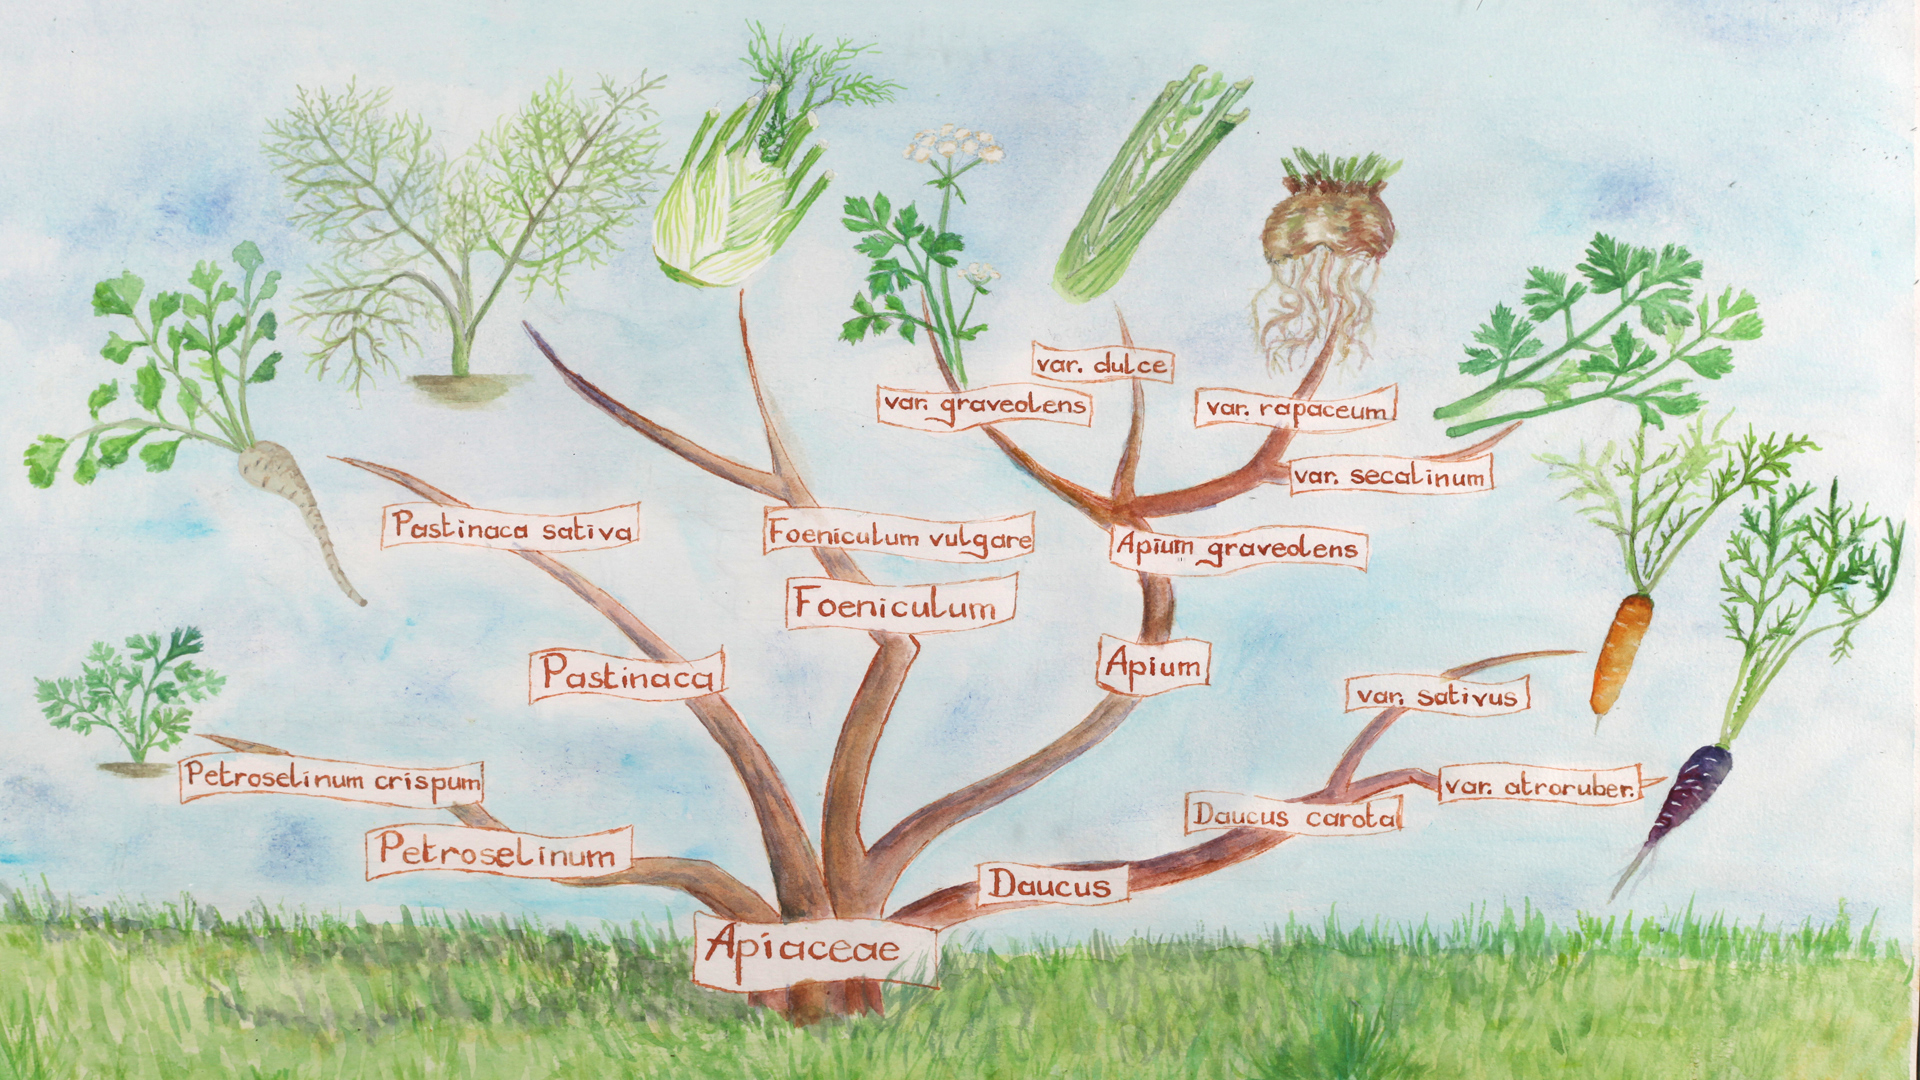 var. dulce
var. graveolens
var. rapaceum
var. secalinum
Pastinaca sativa
Foeniculum vulgare
Apium graveolens
Foeniculum
Pastinaca
Apium
var. sativus
Petroselinum crispum
var. atroruber.
Daucus carota
Petroselinum
Daucus
Apiaceae